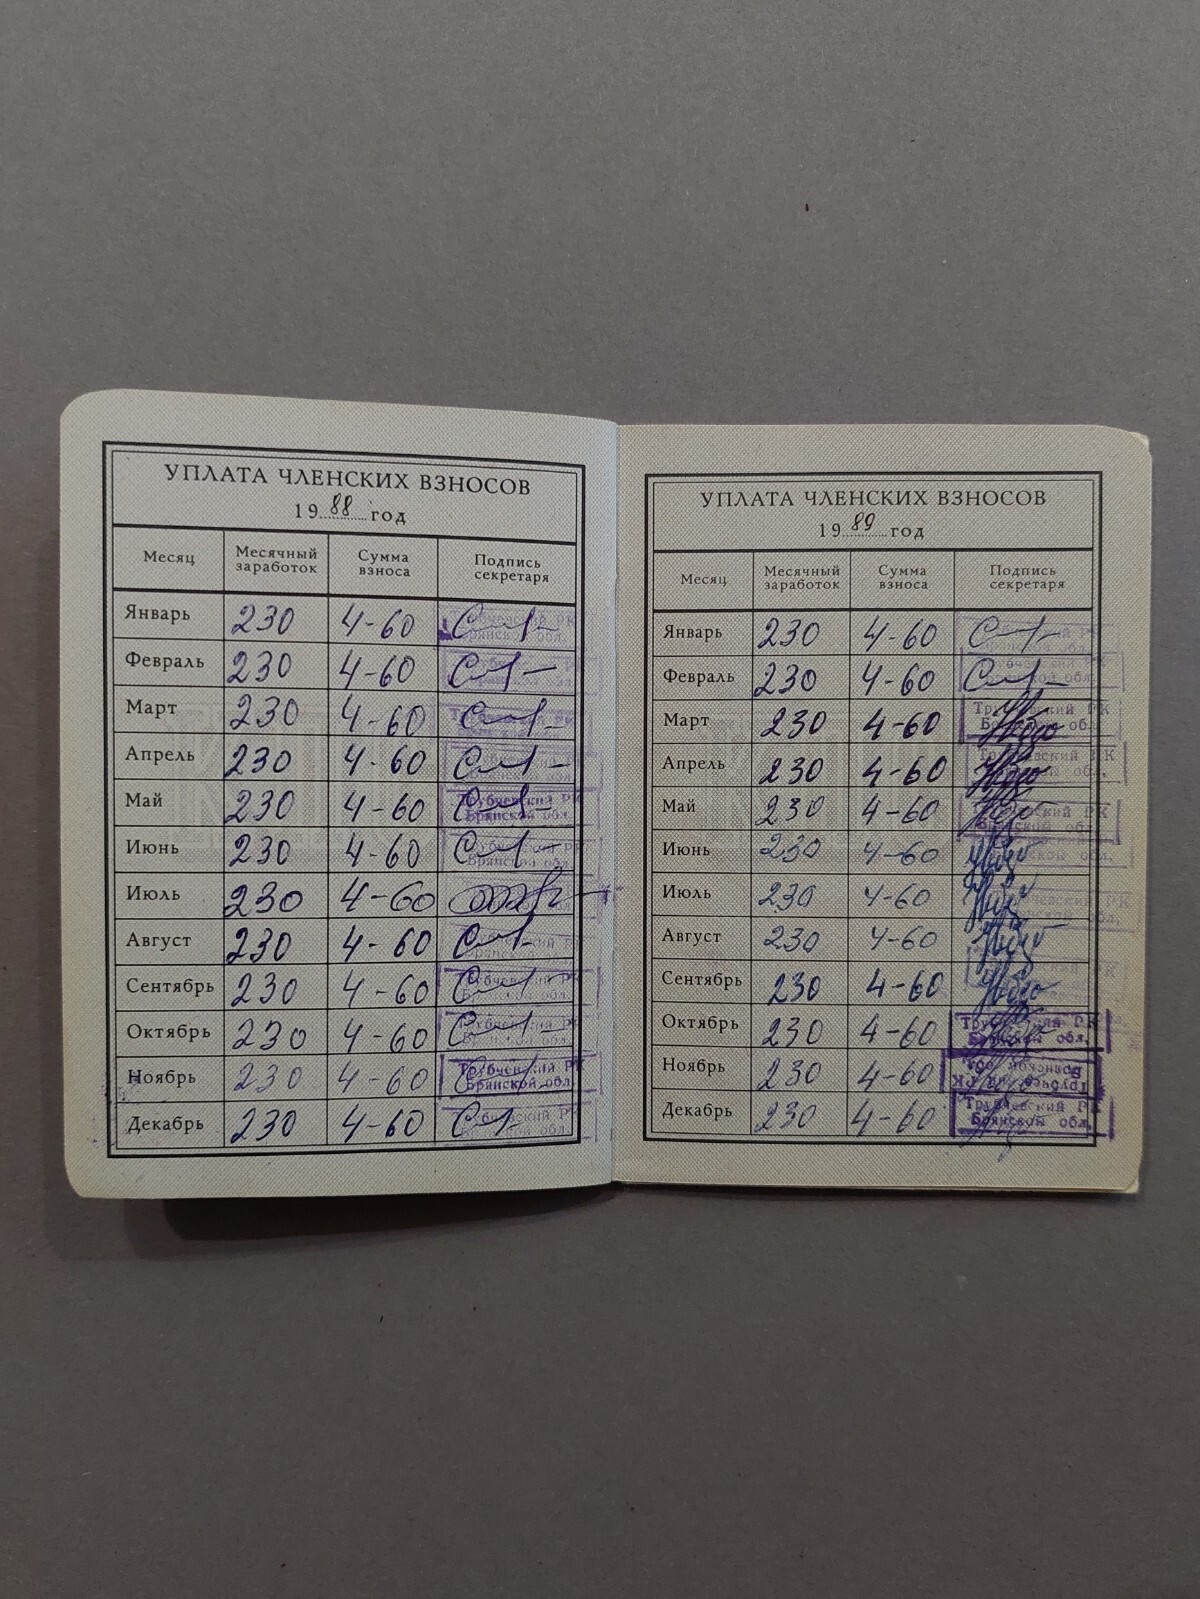 УПЛАТА ЧЛЕНСКИХ ВЗНОСОВ
1988 год
Месяц Месячный заработок Сумма взноса Подпись секретаря
Январь 230 4-60 Трубчевский РК Брянской обл.
Февраль 230 4-60
Март 230 4-60
Апрель 230 4-60
Май 230 4-60 Трубчевский РК Брянской обл.
Июнь 230 4-60
Июль 230 4-60
Август 230 4-60
Сентябрь 230 4-60 Трубчевский РК Брянской обл.
Октябрь 230 4-60
Ноябрь 230 4-60 Трубчевский РК Брянской обл.
Декабрь 230 4-60 Трубчевский РК Брянской обл.
УПЛАТА ЧЛЕНСКИХ ВЗНОСОВ
1989 год
Месяц Месячный заработок Сумма взноса Подпись секретаря
Январь 230 4-60
Февраль 230 4-60 Трубчевский РК Брянской обл.
Март 230 4-60 Трубчевский РК Брянской обл.
Апрель 230 4-60 Трубчевский РК Брянской обл.
Май 230 4-60 Трубчевский РК Брянской обл.
Июнь 230 4-60
Июль 230 4-60 Трубчевский РК Брянской обл.
Август 230 4-60
Сентябрь 230 4-60
Октябрь 230 4-60 Трубчевский РК Брянской обл.
Ноябрь 230 4-60 Трубчевский РК Брянской обл.
Декабрь 230 4-60 Трубчевский РК Брянской обл.